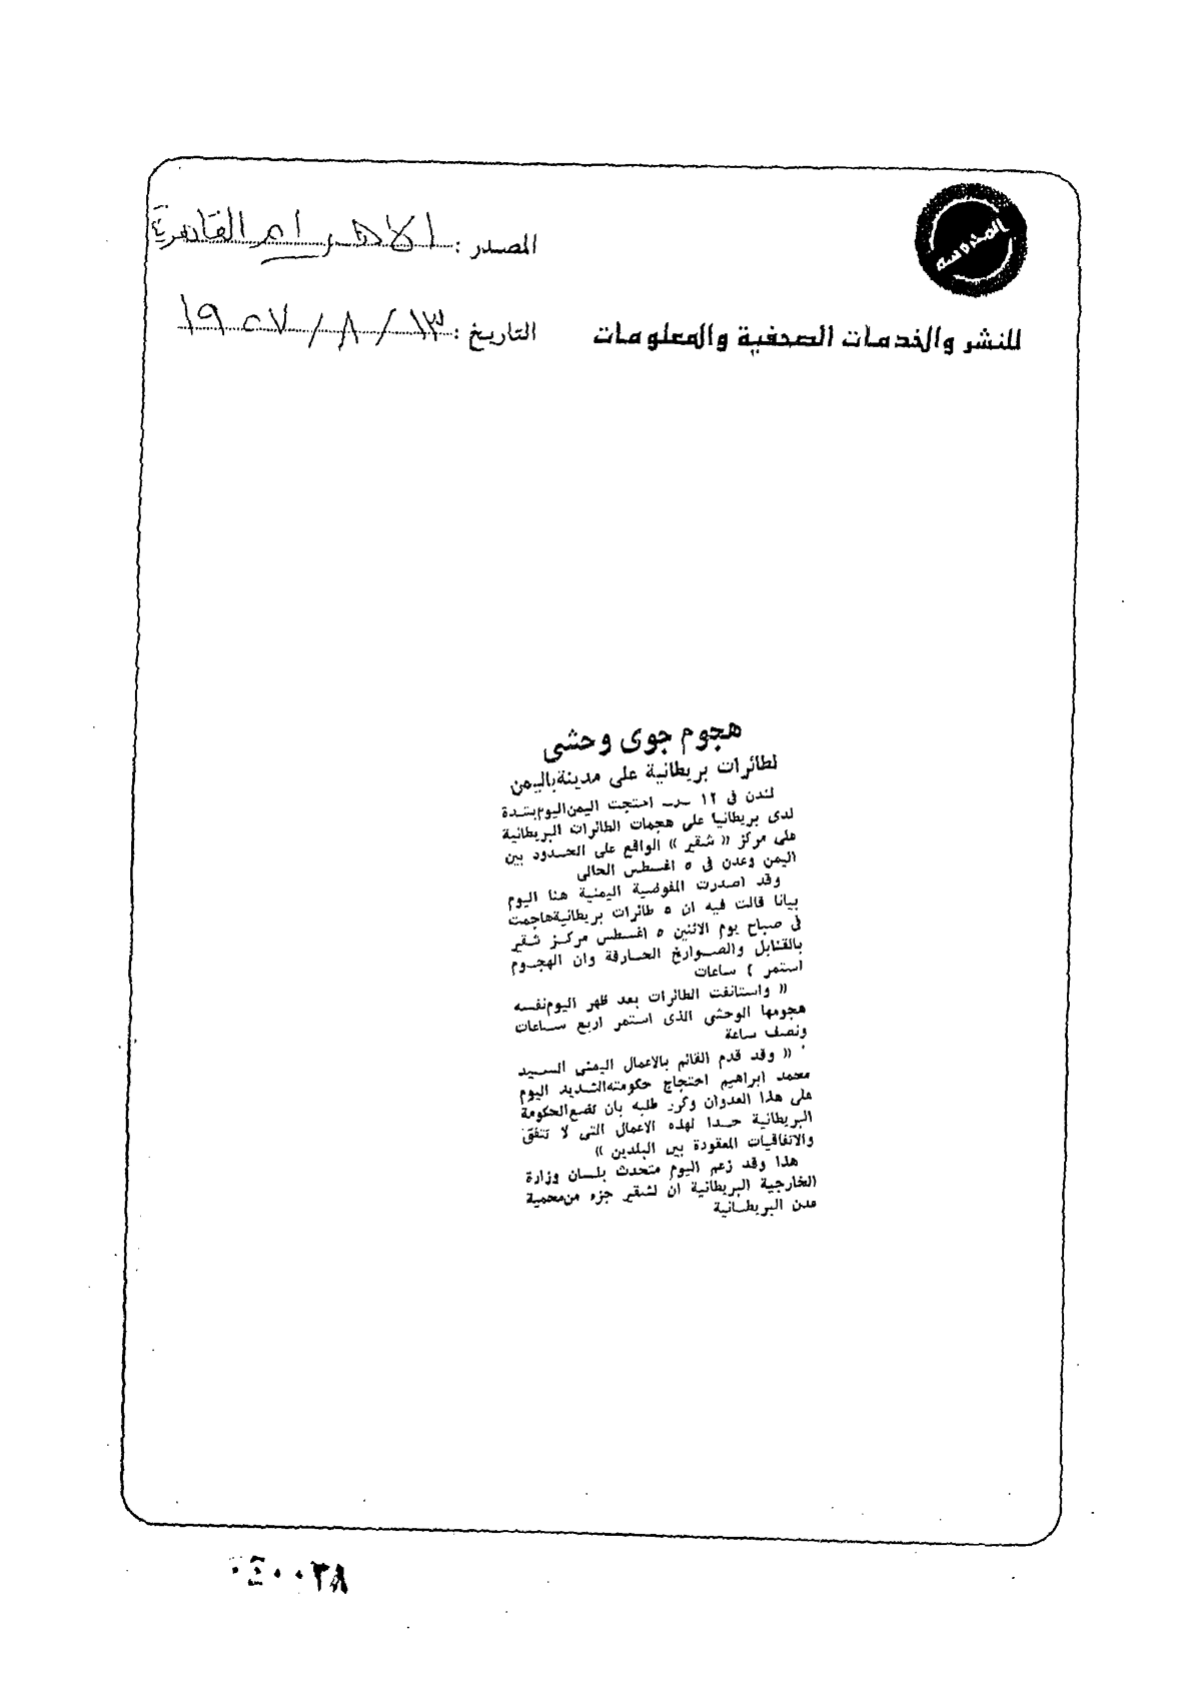 المحروسة
للنشر والخدمات الصحفية والمعلومات
المصدر : الاهرام القاهرية
التاريخ : ١٣ / ٨ / ١٩٥٧
هجوم جوى وحشى
لطائرات بريطانية على مدينة باليمن
لندن فى ١٢ ـ احتجت اليمن اليوم بشدة
لدى بريطانيا على هجمات الطائرات البريطانية
على مركز « شقير » الواقع على الحدود بين
اليمن وعدن فى ٥ اغسطس الحالى
وقد اصدرت المفوضية اليمنية هنا اليوم
بيانا قالت فيه ان ٥ طائرات بريطانية هاجمت
فى صباح يوم الاثنين ٥ اغسطس مركز شقير
بالقنابل والصواريخ الحارقة وان الهجوم
استمر ٤ ساعات
« واستانفت الطائرات بعد ظهر اليوم نفسه
هجومها الوحشى الذى استمر اربع ساعات
ونصف ساعة
« وقد قدم القائم بالاعمال اليمنى السيد
محمد ابراهيم احتجاج حكومته الشديد اليوم
على هذا العدوان وكرر طلبه بان تضع الحكومة
البريطانية حدا لهذه الاعمال التى لا تتفق
والاتفاقيات المعقودة بين البلدين »
هذا وقد زعم اليوم متحدث بلسان وزارة
الخارجية البريطانية ان لشقير جزء من محمية
عدن البريطانية
٠٤٠٠٢٨